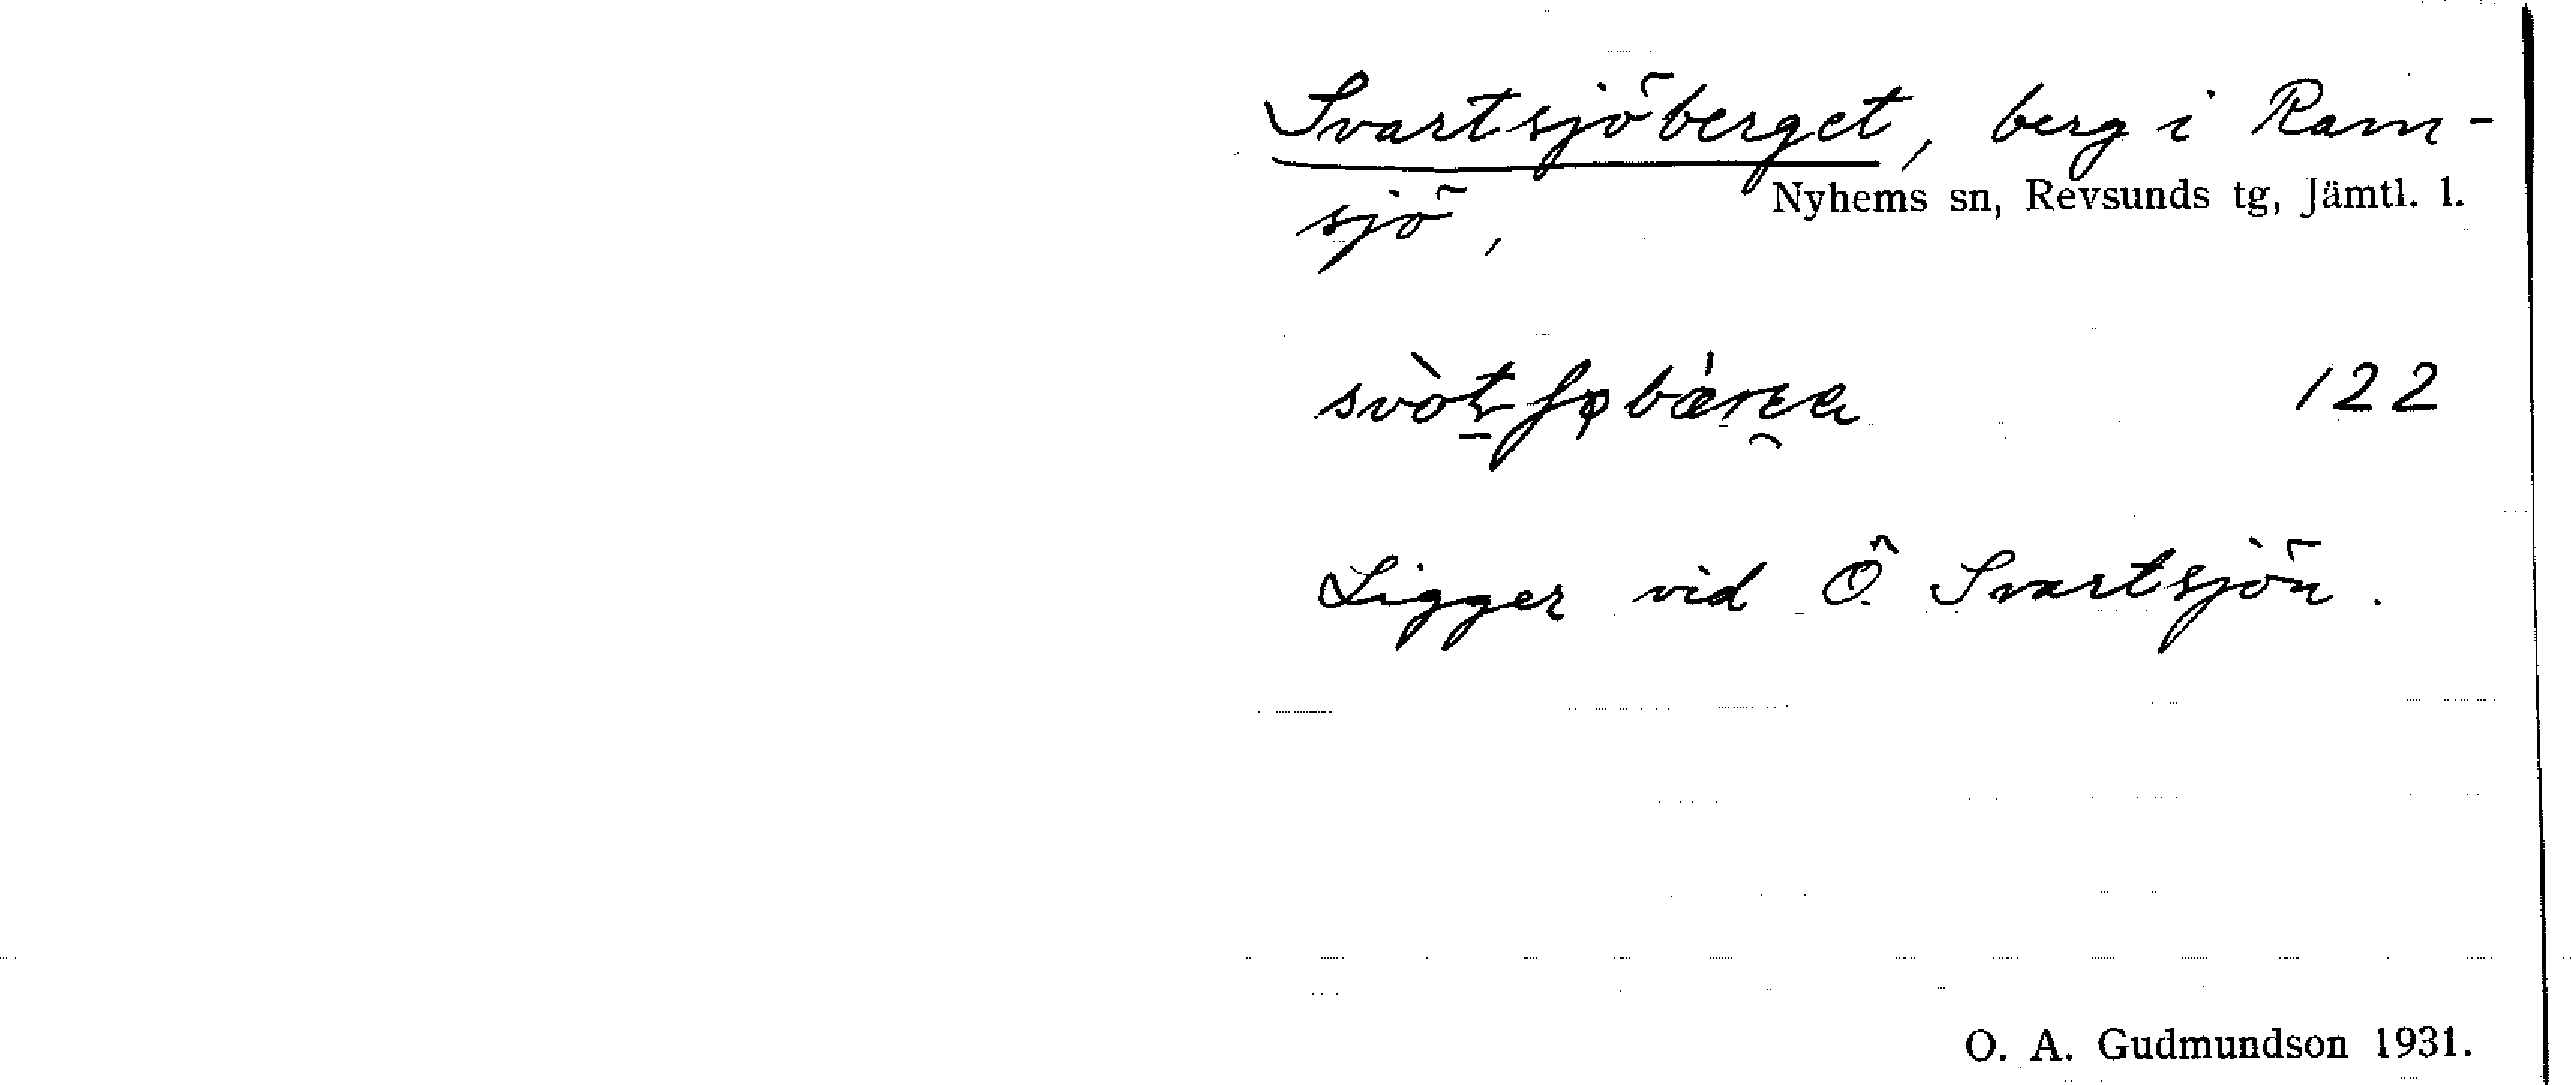 Svartsjöberget, berg i Ram-
Nyhems sn, Revsunds tg, Jämtl. l.
sjö,
122
Ligger vid Ö Svartsjön.
O. A. Gudmundson 1931.